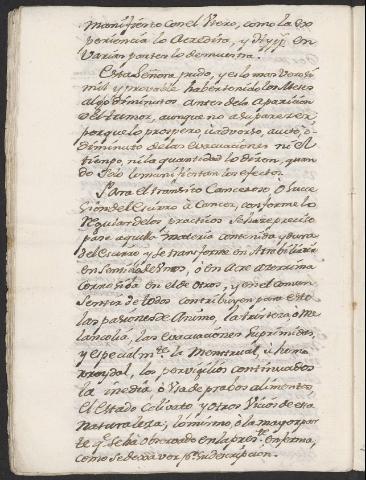 manifiesto con el Utero, como la ex
periencia lo Acredita, y en
varias partes lo demuestra.
Esta Señora, pudo, y es lo mas verosi
mil y provable haber tenido los Meses
algo diminutos antes de la Aparicion
del tumor, aunque no a su parecer
porque lo prospero ù adverso, aucto, ò
diminuto de las evacuaciones ni el
tiempo, ni la quantidad lo dicen, quan
do solo lo manifiestan los efectos.
Para el transito Canceroso ò succe
sion del Escirro à Cancer, conforme lo
Regular de los practicos se hace preciso
pase aquella materia contenida y dura
del Escirro y se transforme en Atrabiliaria
en Sentir de unos, ò en Acre azorrima
corrosiba en el de otros, y en el comun
Sentir de todos contribuyen para esto
las pasiones de Animo, la tristeza, ò Me
lancolia, las evacuaciones suprimidas,
y especialmte. la Menstrual, ù hemo
rroydal, los pervigilios continuados
la inedia, ò Usa de prabos alimentos,
el Estado Celivato y otros Vicios de esta
Naturaleza; lo mismo, ò la mayor par
te qe. se ha observado en la prste. enferma,
como se dexa ver pr. su descripcion.